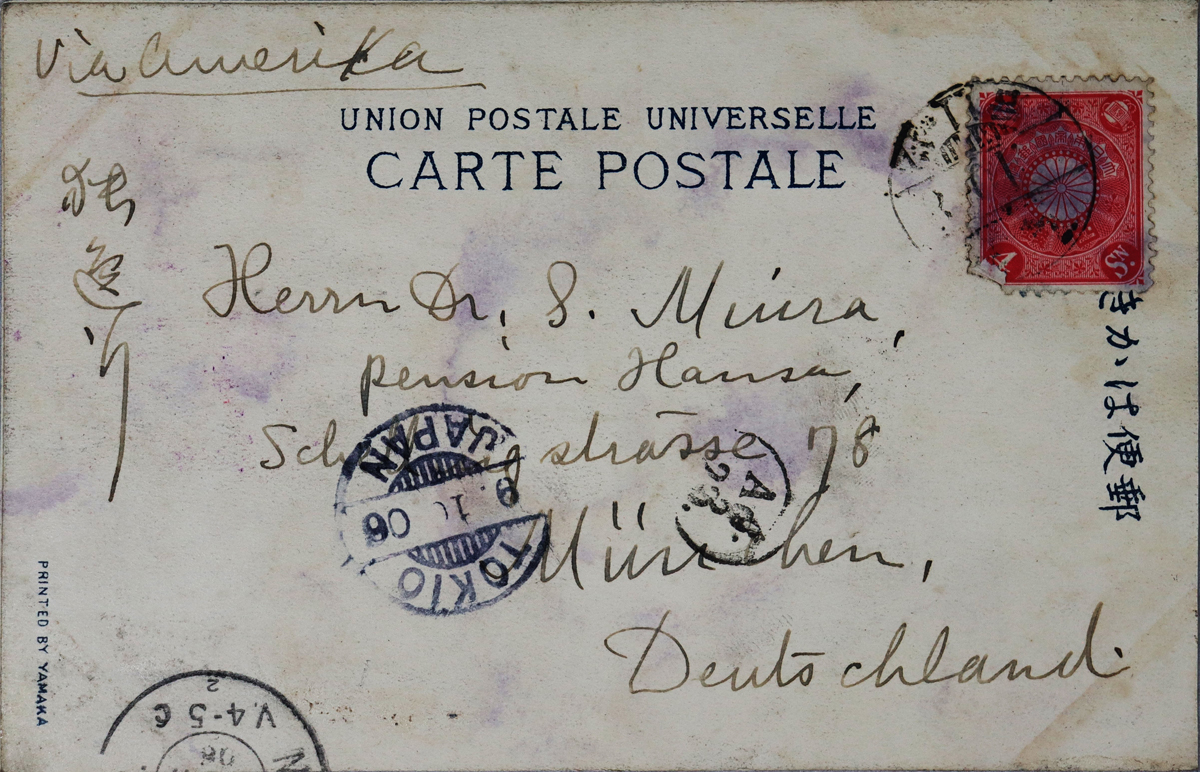 Via Amerika
UNION POSTALE UNIVERSELLE
CARTE POSTALE
Herrn Dr. S. Miura,
pension Hansa,
strasse 78
München,
Deutschland.
郵便はかき
TOKIO
9. 10 06
JAPAN
4
SN.
PRINTED BY YAMAKA
V.4-5 C
2